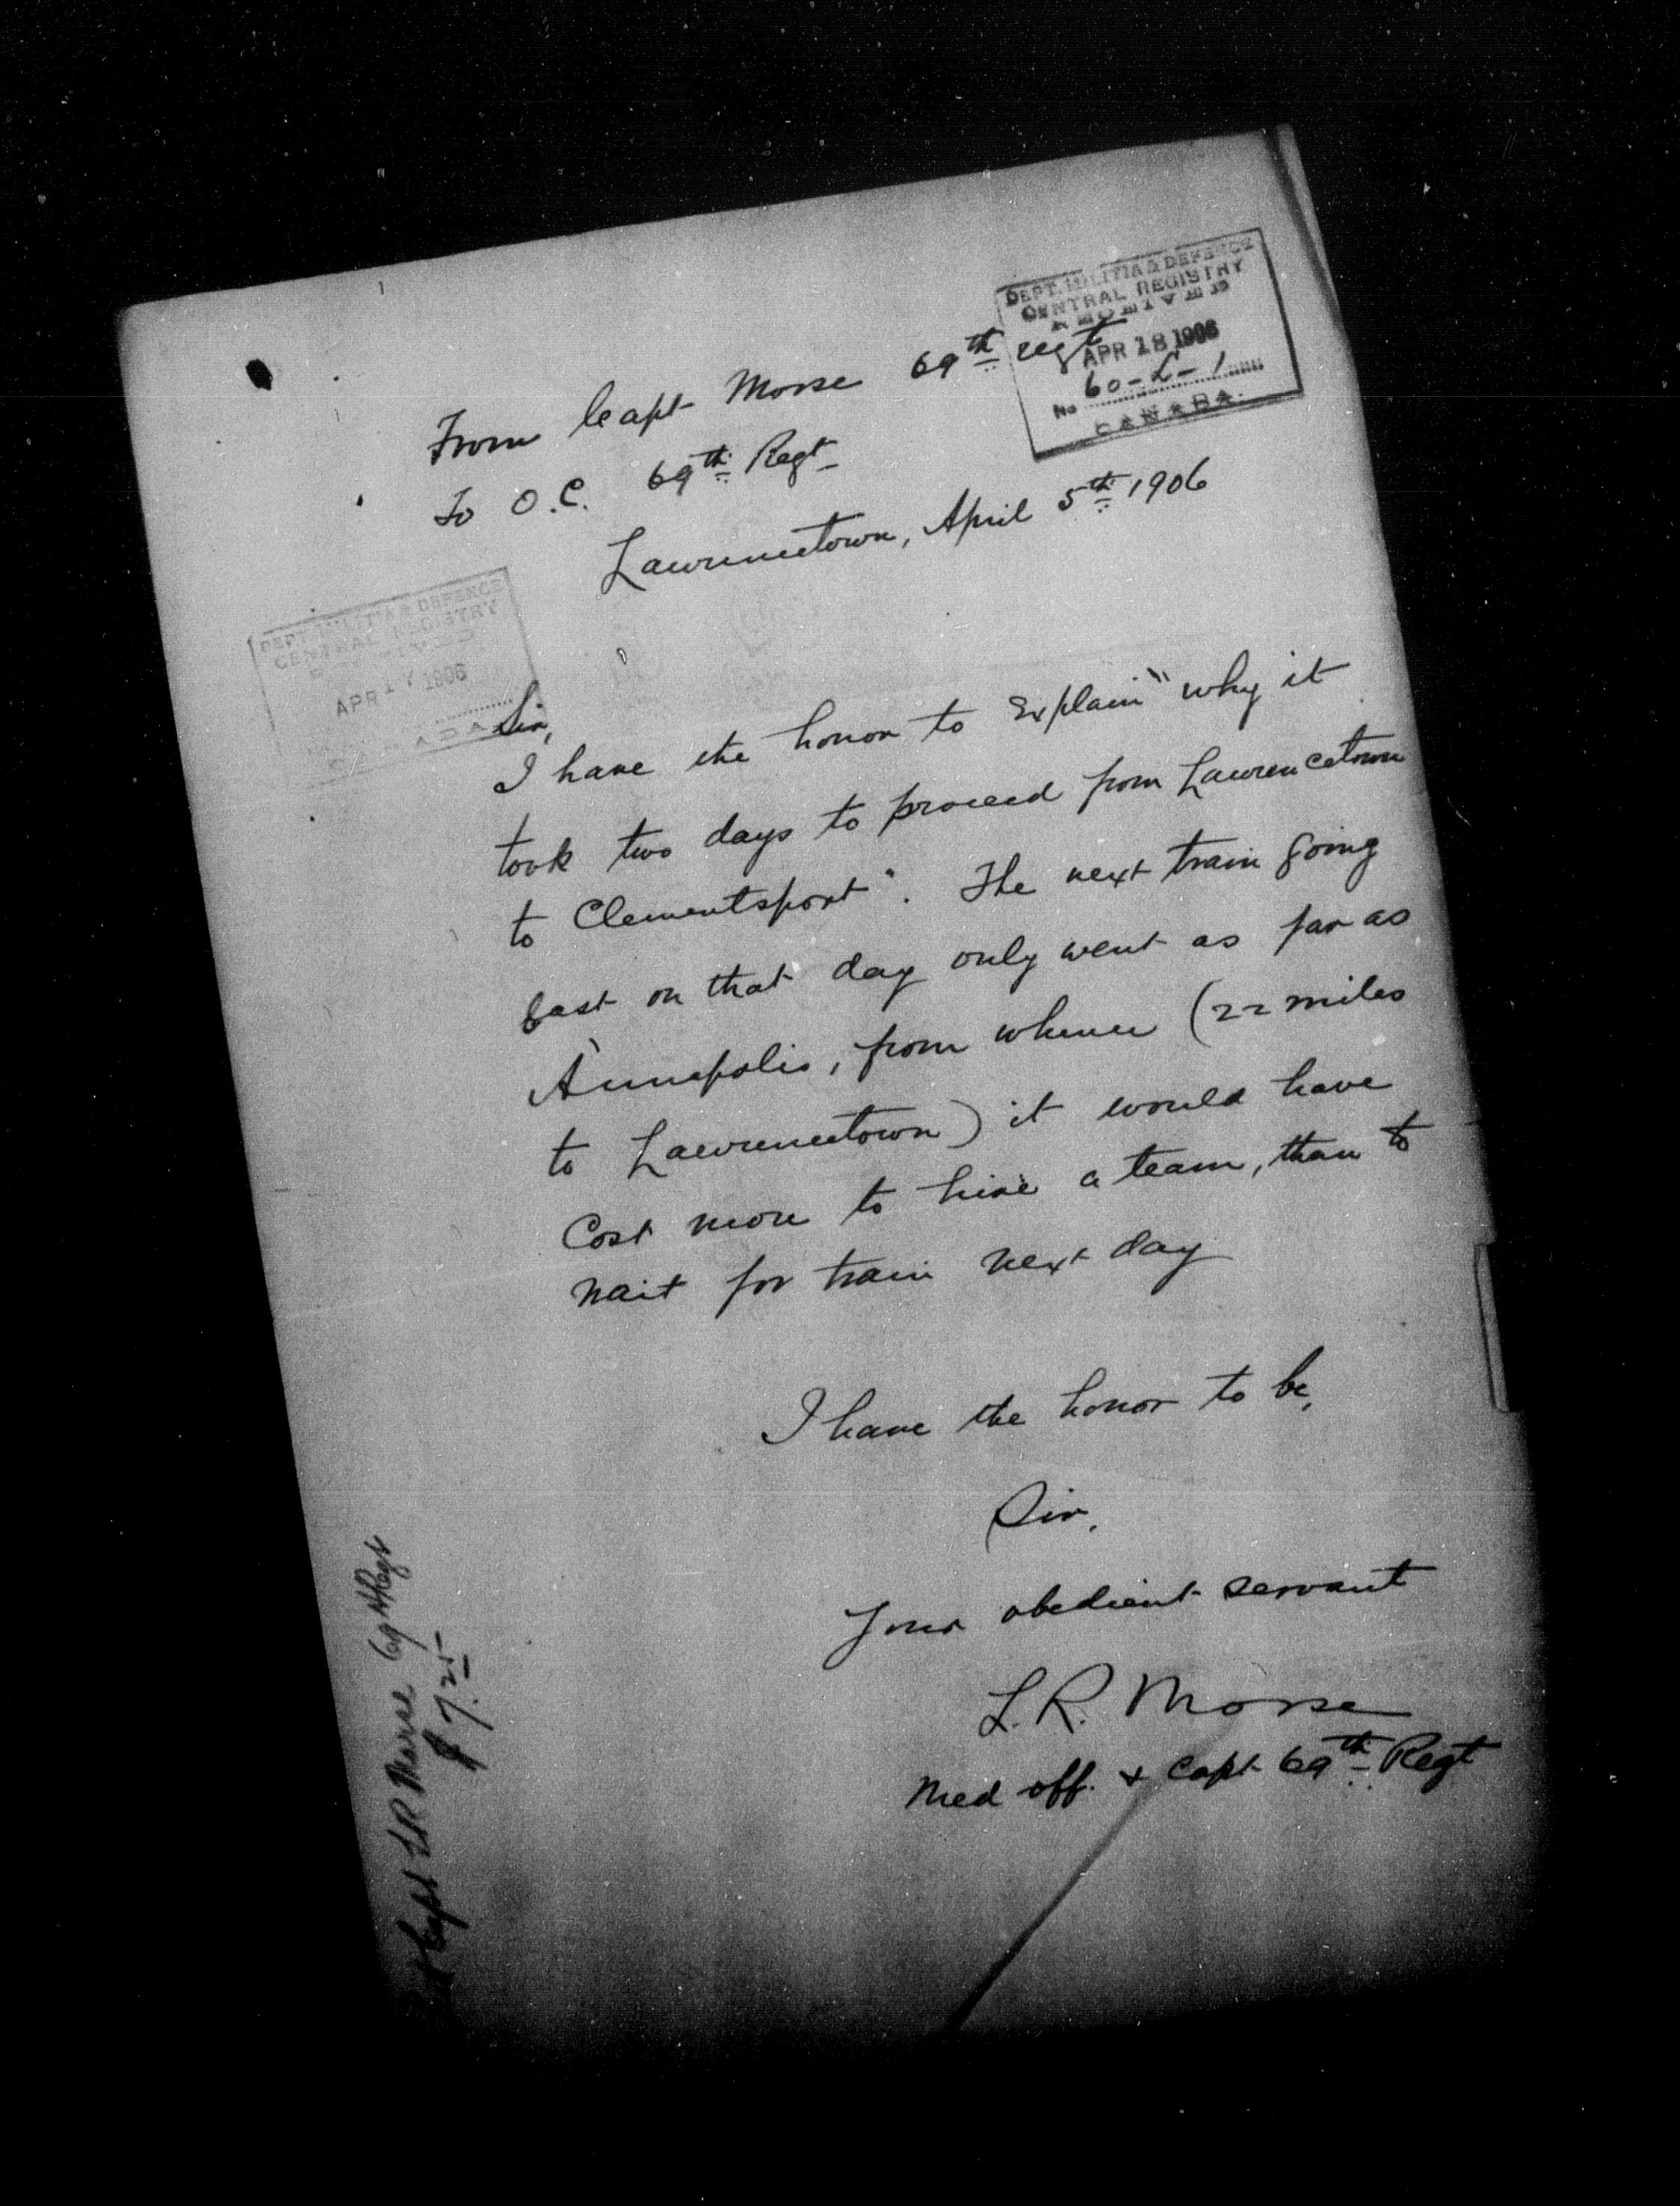 DEPT. MILITIA & DEFENCE
CENTRAL REGISTRY
RECEIVED
APR 18 1906
No 60-L-1
CANADA.
From Capt Morse 69th regt
To O.C. 69th Regt
Lawrencetown, April 5th 1906
DEPT. MILITIA & DEFENCE
CENTRAL REGISTRY
RECEIVED
APR 17 1906
CANADA
Sir,
I have the honor to explain "why it
took two days to proceed from Lawrencetown
to Clementsport". The next train going
East on that day only went as far as
Annapolis, from whence (22 miles
to Lawrencetown) it would have
Cost more to hire a team, than to
wait for train next day
I have the honor to be,
Sir,
Your obedient servant
L.R. Morse
Med off. & Capt 69th Regt
Capt LR Morse 69th Regt
$7.25